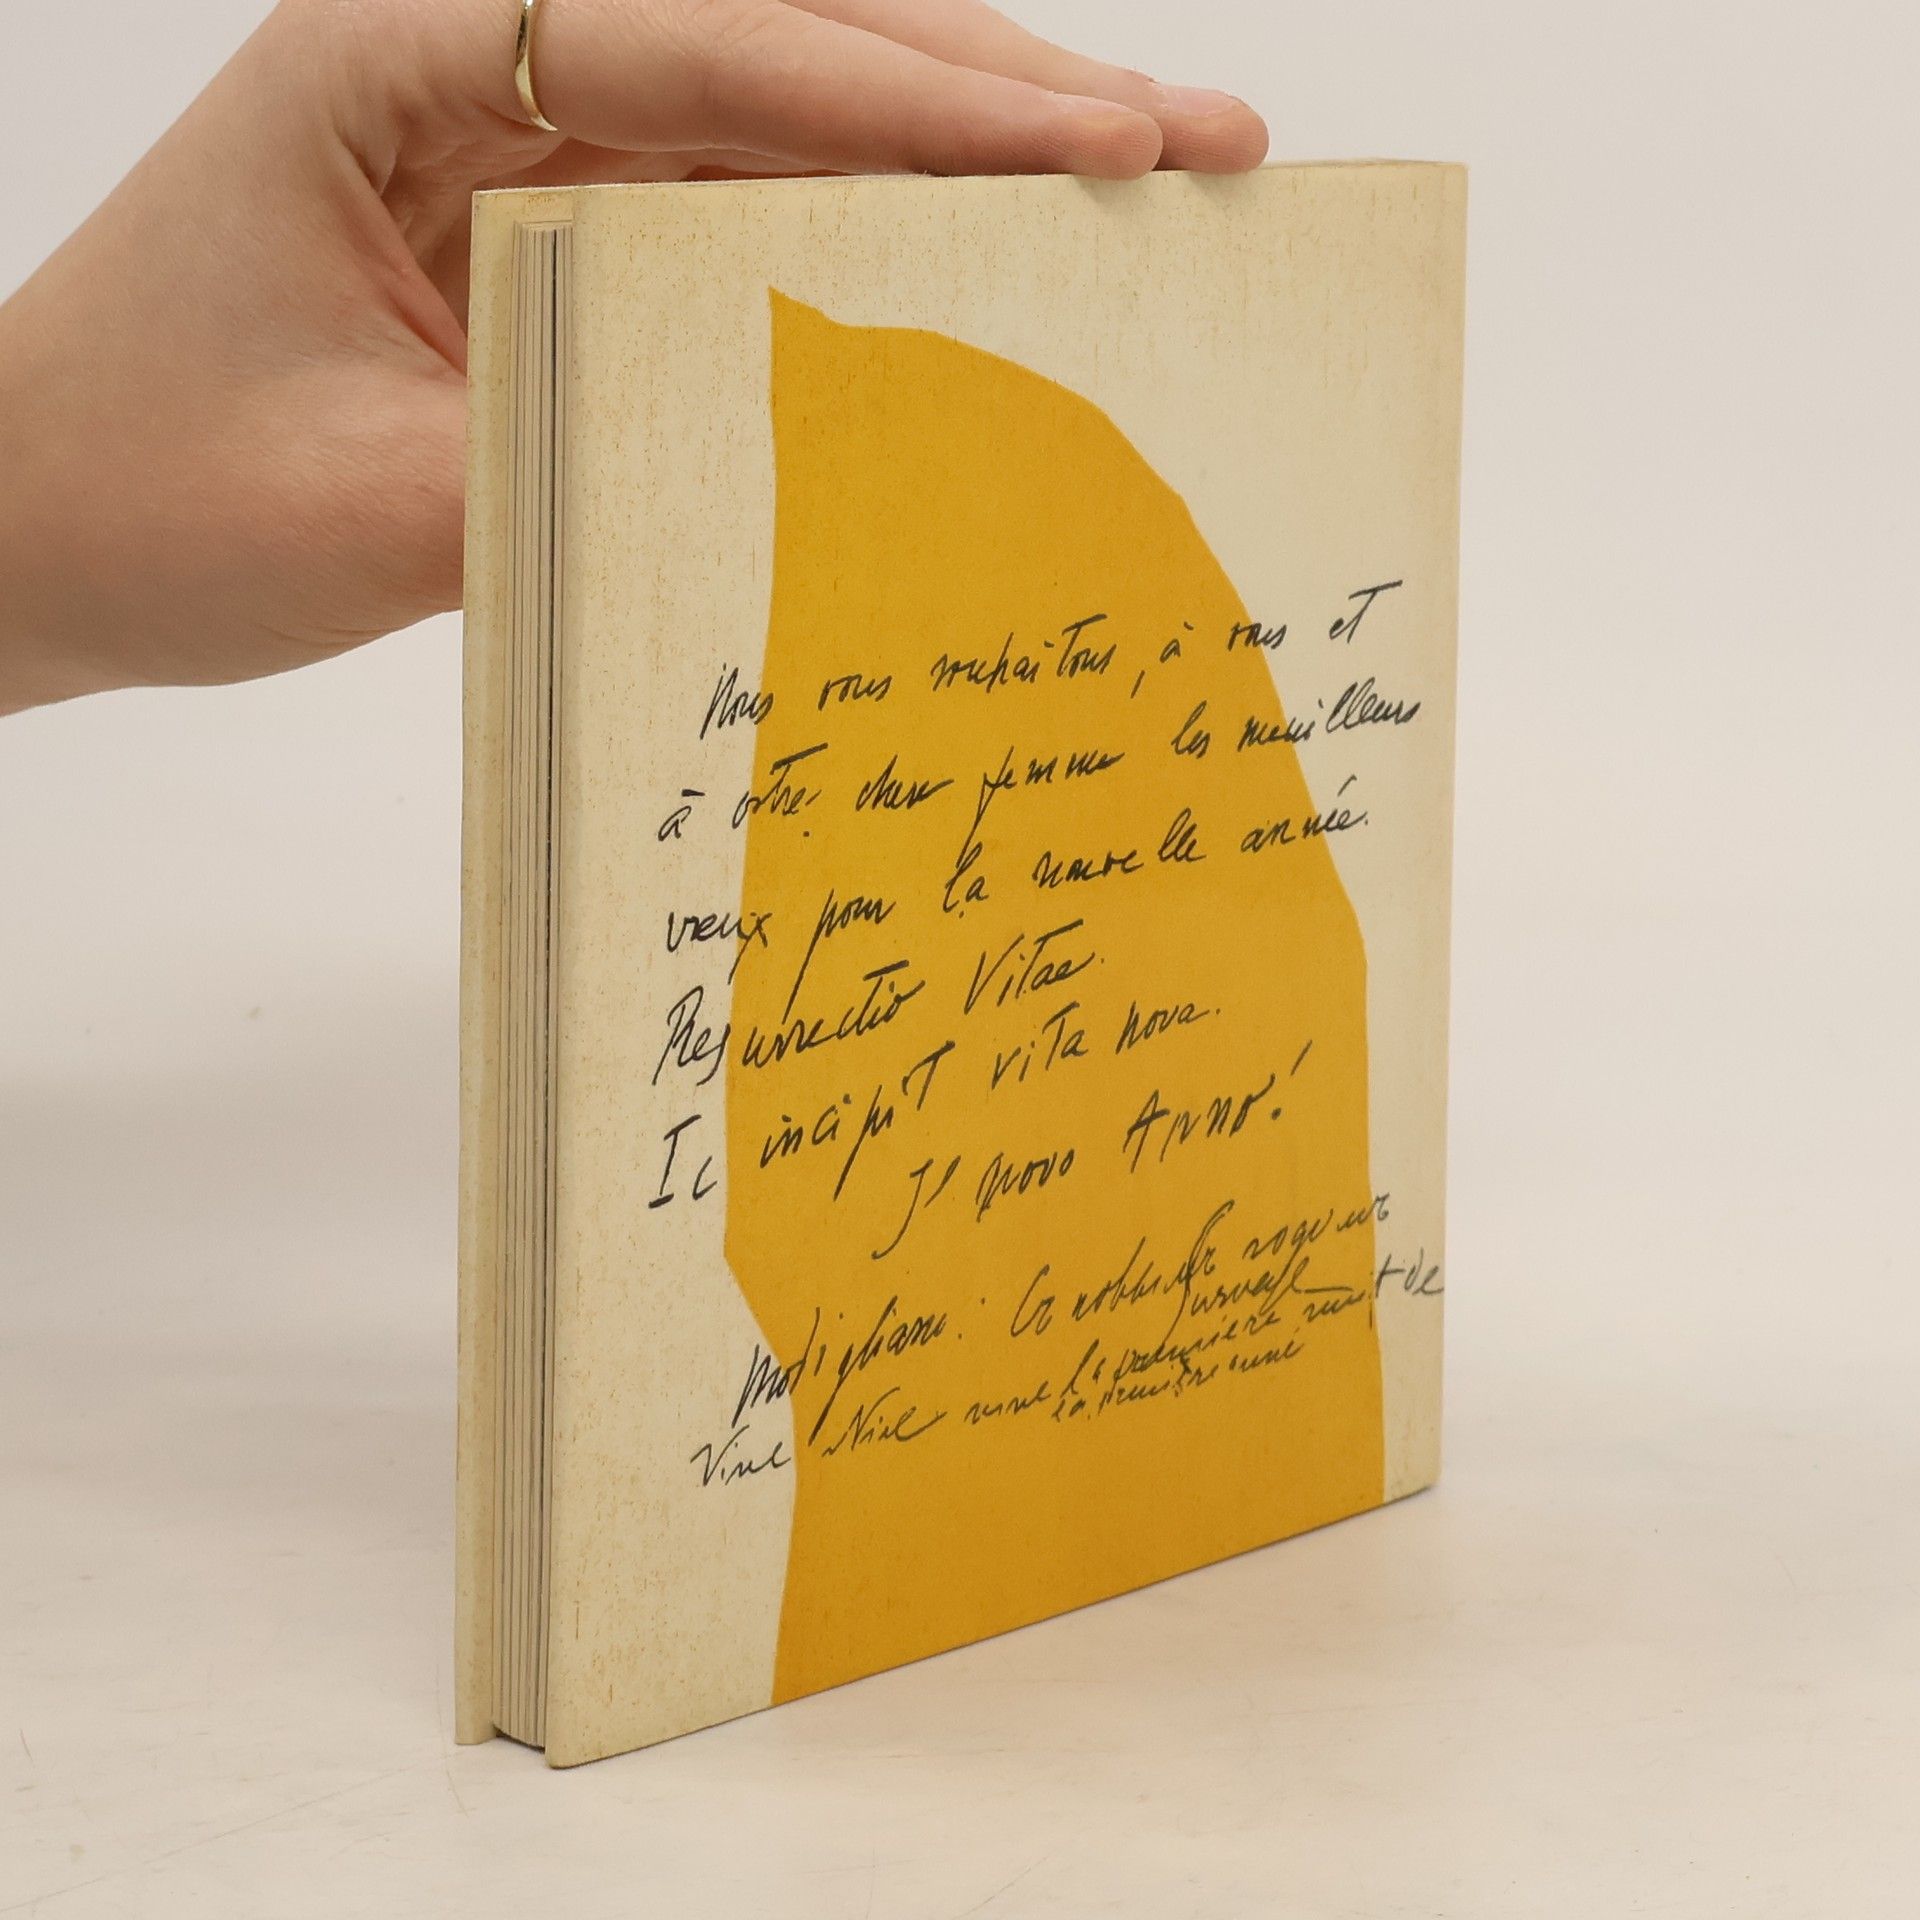 Nous vous souhaitons, à vous et
à votre chere femme les meilleurs
vœux pour la nouvelle année.
Resurrectio Vitae.
Ic incipit vita nova.
Il novo Anno!
Modigliani:
Survage
Vive Nice vive la première nuit de
la première année